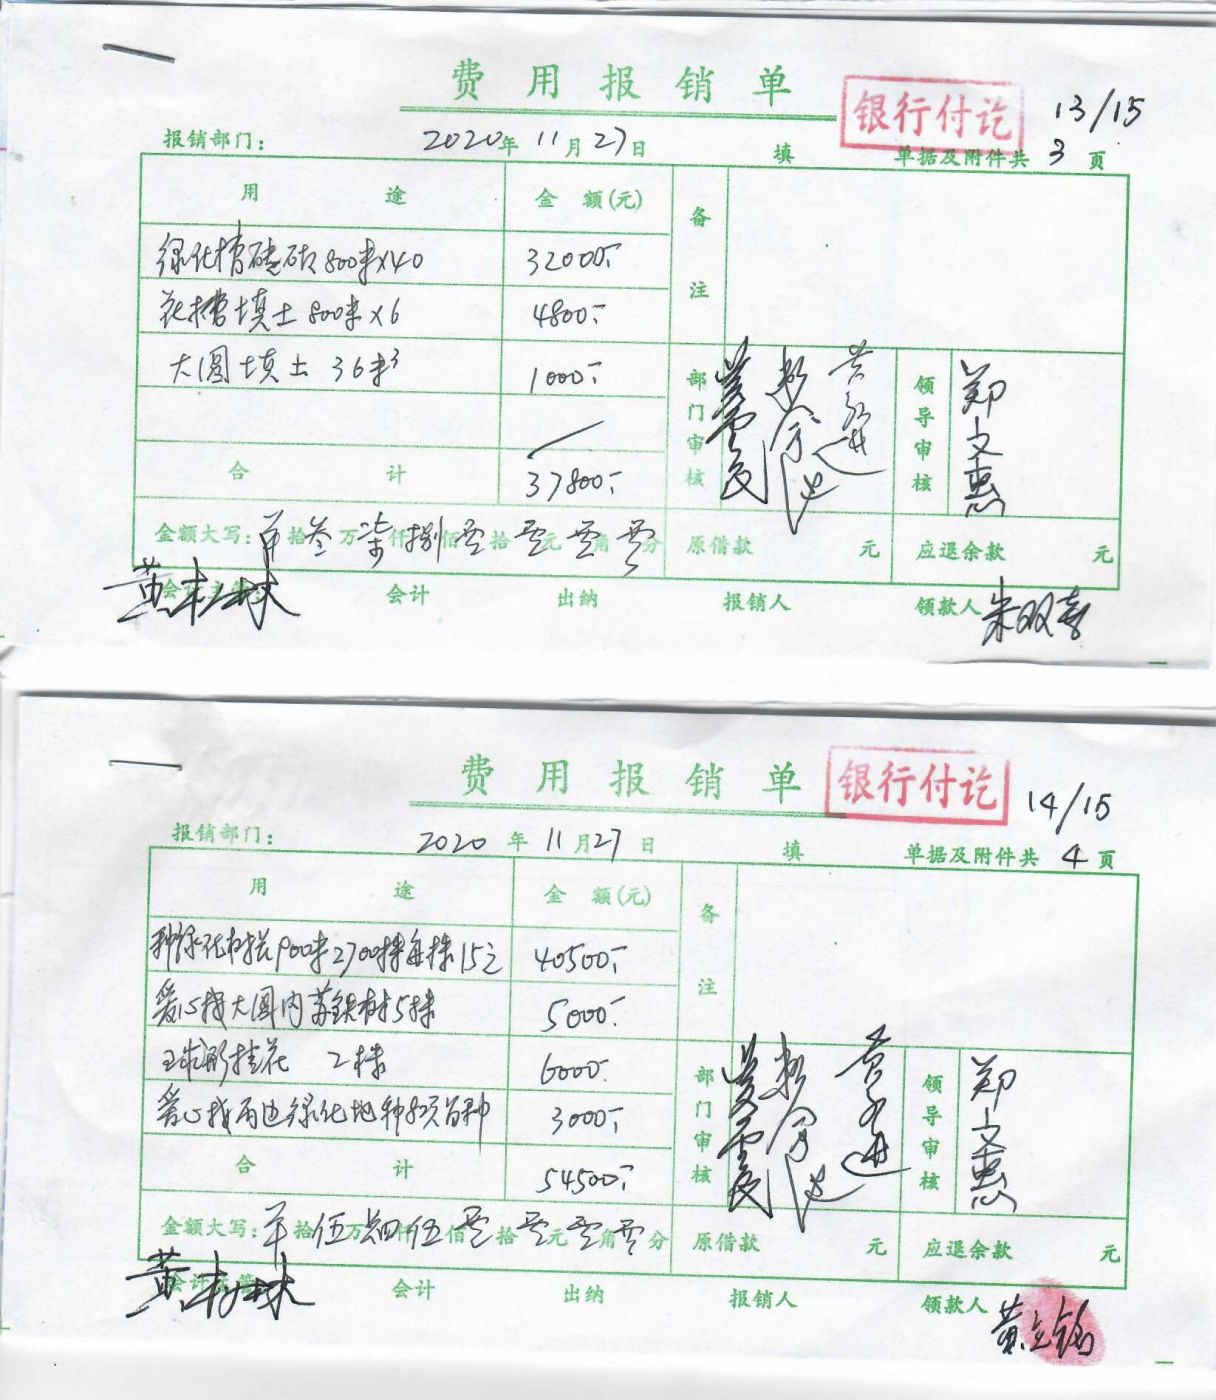 费用报销单
银行付讫
13/15
报销部门：
2020年11月27日
填
单据及附件共 3 页
用途
金额(元)
备注
绿化槽砖砌800米×40
32000.-
花槽填土800米×6
4800.-
大圆填土 36米³
1000.-
合计
37800.-
部门审核
领导审核
郑文惠
金额大写： 拾叁万柒仟捌佰零拾零元零角零分
原借款 元
应退余款 元
会计主管
黄林
会计
出纳
报销人
领款人 朱双喜
费用报销单
银行付讫
14/15
报销部门：
2020年11月27日
填
单据及附件共 4 页
用途
金额(元)
备注
900米2700株每株15元
40500.-
爱心线大圆内苏铁树5株
5000.-
球形桂花 2株
6000.-
爱心线两边绿化地种
3000.-
合计
54500.-
部门审核
领导审核
郑文惠
金额大写： 拾伍万肆仟伍佰零拾零元零角零分
原借款 元
应退余款 元
会计主管
黄林
会计
出纳
报销人
领款人 黄